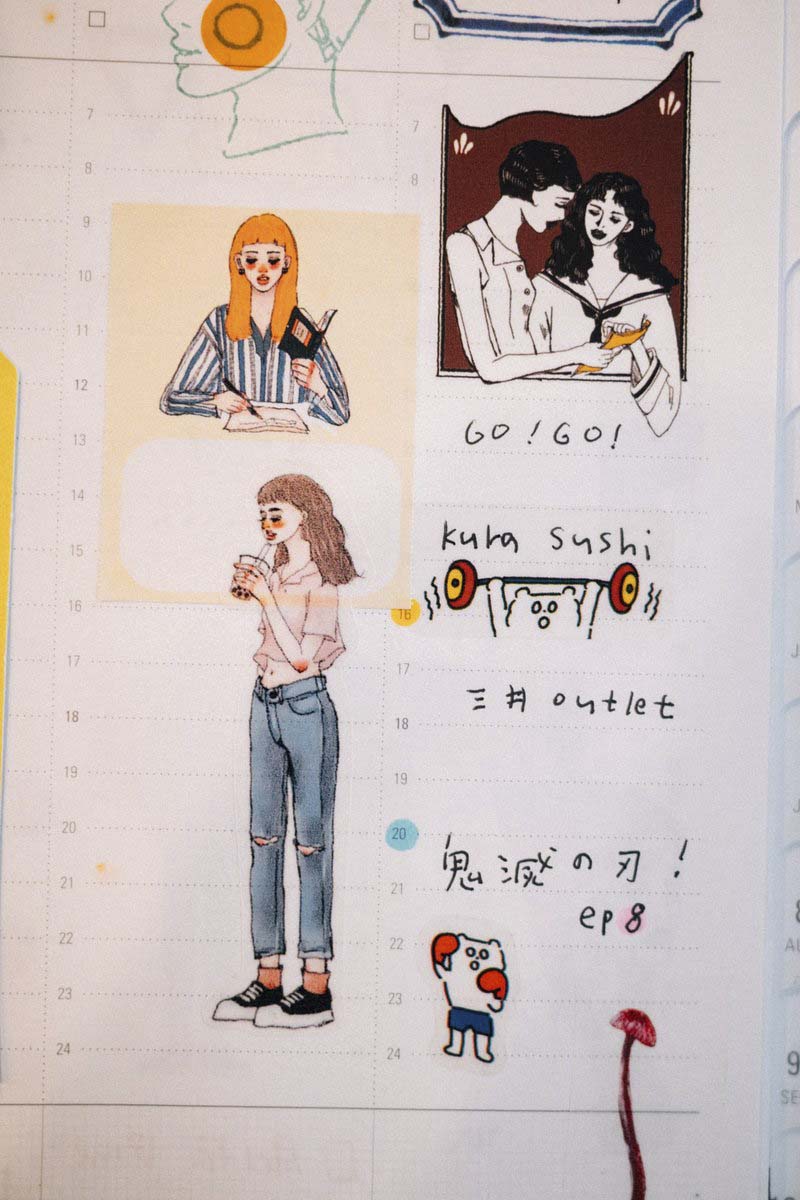 7
8
9
10
11
12
13
14
15
16
17
18
19
20
21
22
23
24
7
8
GO!GO!
kura sushi
16
17
三井 outlet
18
19
20
鬼滅の刃!
21
ep 8
22
23
24
9